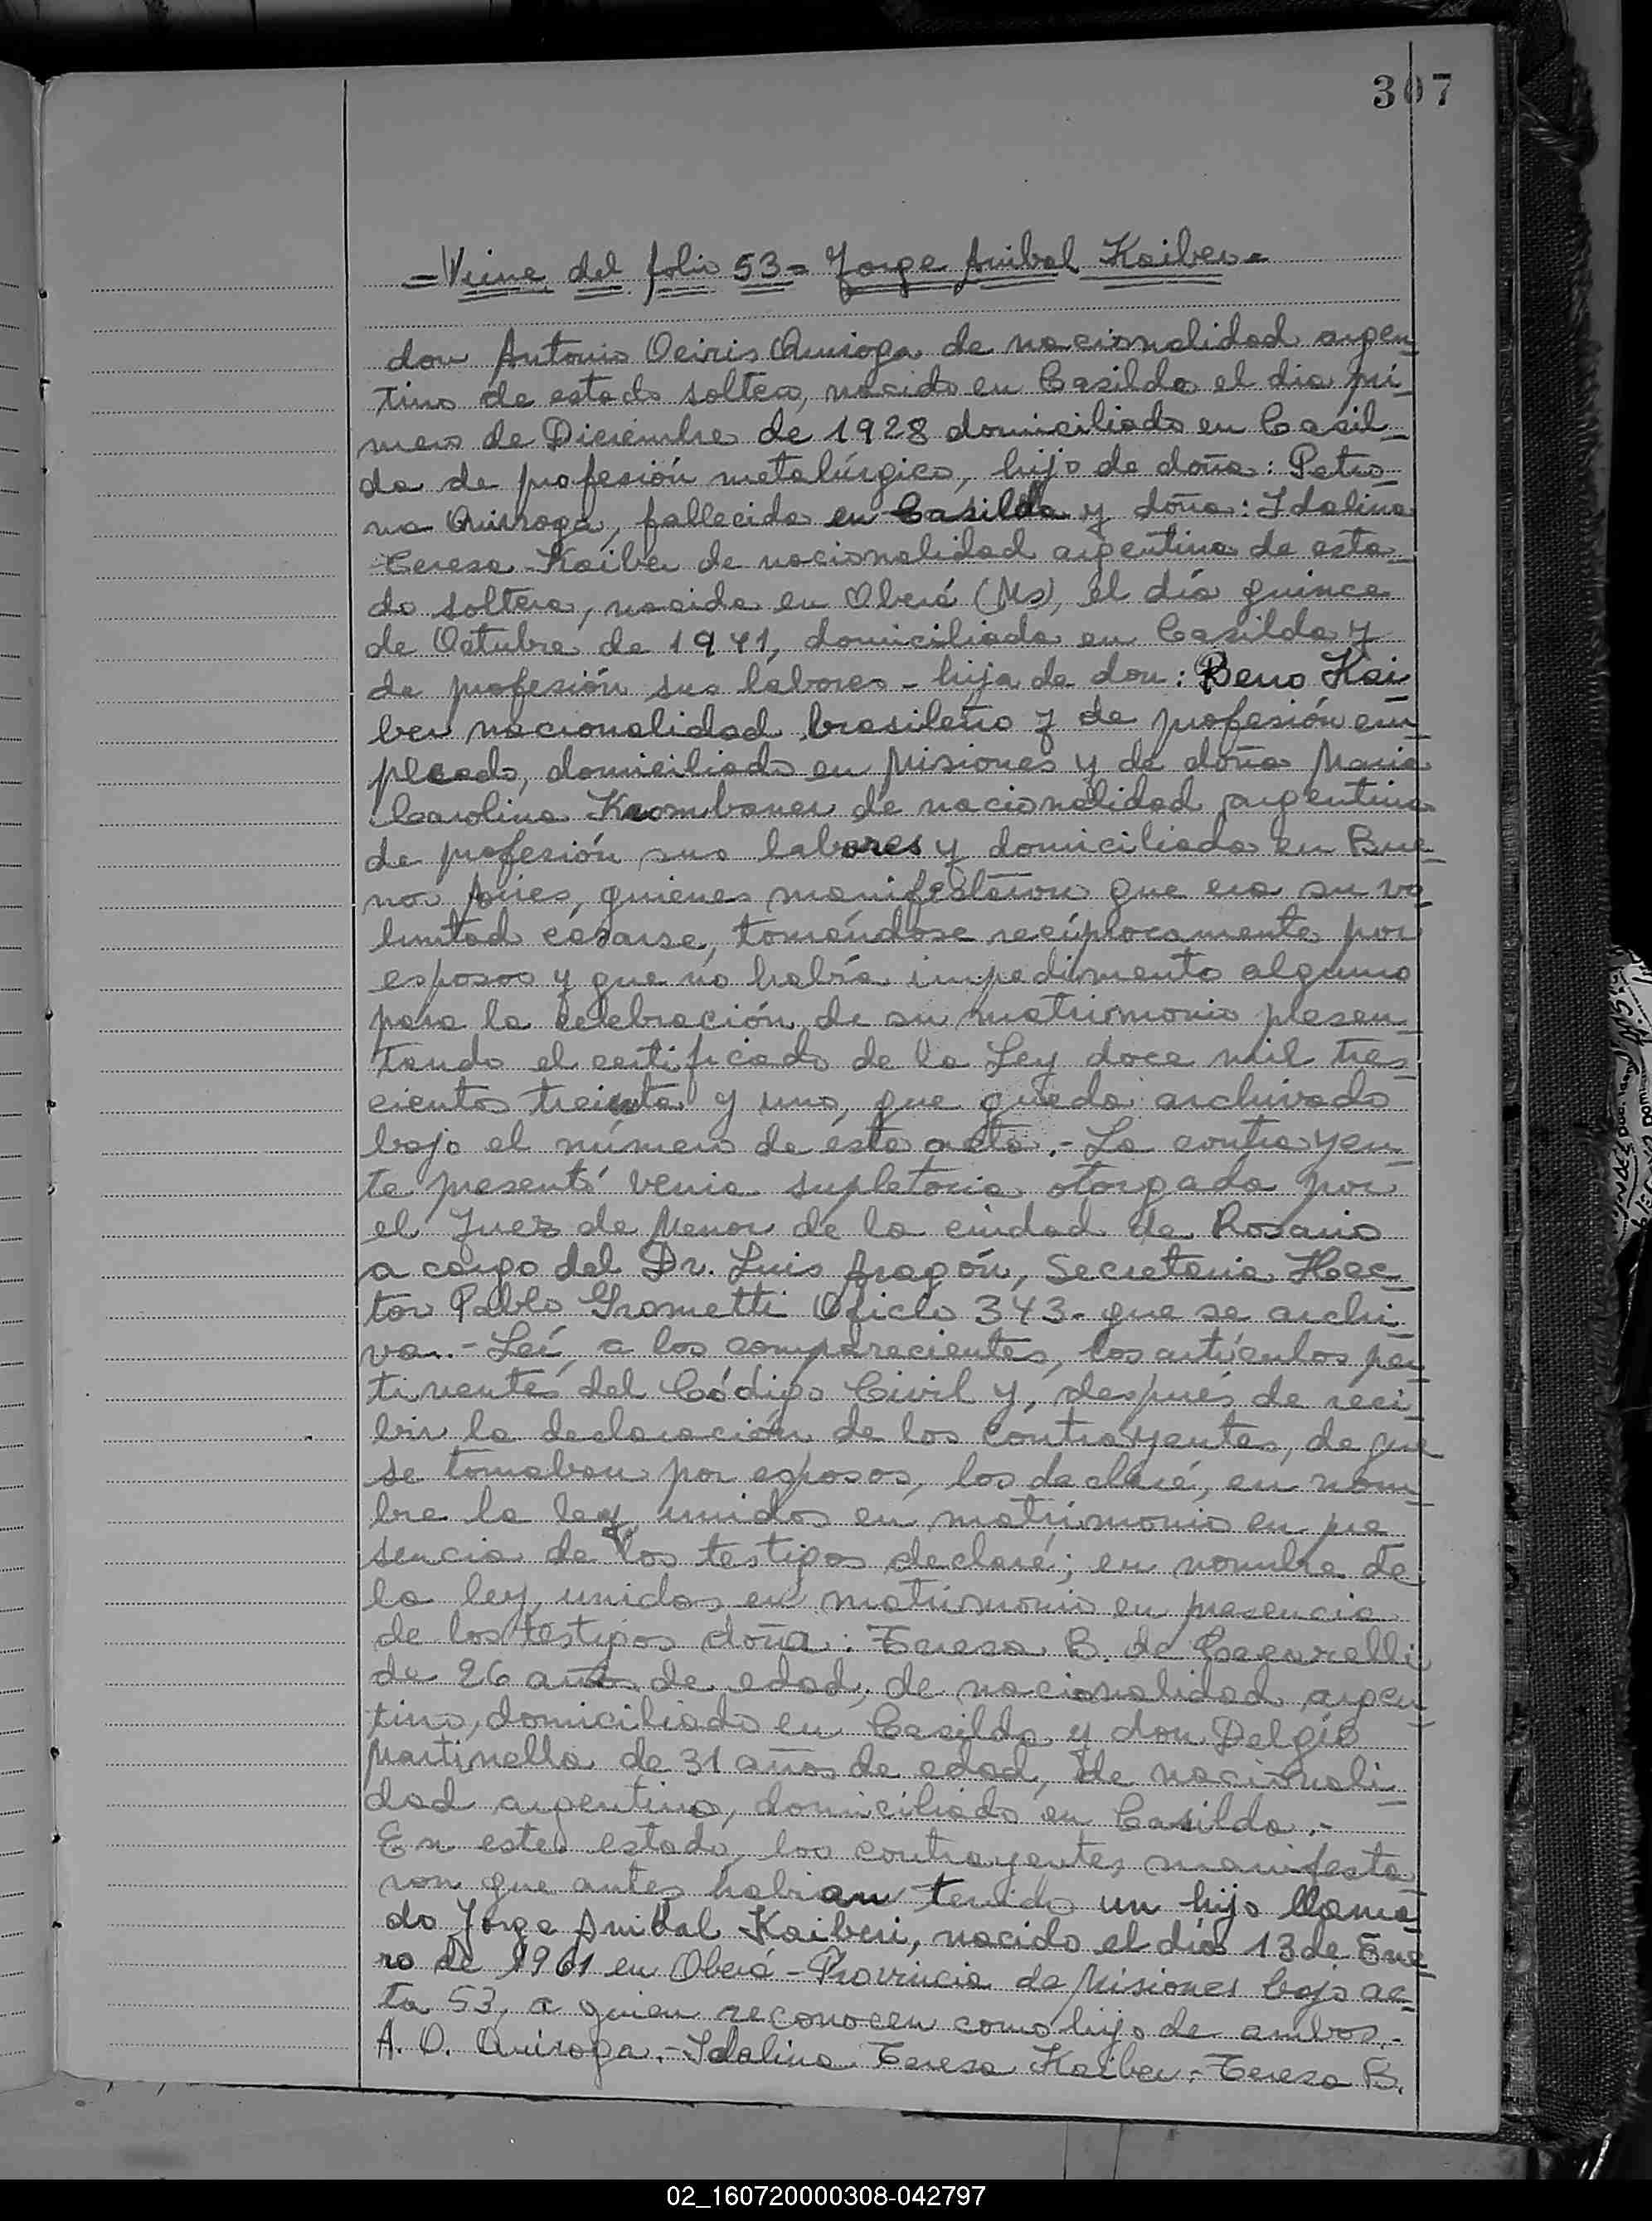 307
= Viene del folio 53 = Jorge Anibal Kaiber =
don Antonio Osiris Quiroga de nacionalidad argen-
tino de estado soltero, nacido en Casilda el dia pri-
mero de Diciembre de 1928 domiciliado en Casil-
da de profesión metalúrgico, hijo de doña: Petro-
na Quiroga, fallecida en Casilda y doña: Idalina
Teresa Kaiber de nacionalidad argentina de esta-
do soltera, nacida en Oberá (Ms), el día quince
de Octubre de 1941, domiciliada en Casilda y
de profesión sus labores - hija de don: Beno Kai-
ber nacionalidad brasileño y de profesión em-
pleado, domiciliado en Misiones y de doña Maria
Carolina Krombauer de nacionalidad argentina
de profesión sus labores y domiciliada en Bue-
nos Aires, quienes manifestaron que era su vo-
luntad casarse, tomándose recíprocamente por
esposos y que no había impedimento alguno
para la celebración de su matrimonio presen-
tando el certificado de la Ley doce mil tres-
cientos treinta y uno, que queda archivado
bajo el número de ésta acta.- La contrayen-
te presentó venia supletoria otorgada por
el Juez de Menor de la ciudad de Rosario
a cargo del Dr. Luis Aragón, Secretaria Hec-
tor Pablo Grometti Oficio 343- que se archi-
va.- Leí, a los comparecientes, los artículos per-
tinentes del Código Civil y, después de reci-
bir la declaración de los contrayentes, de que
se tomaban por esposos, los declaré, en nom-
bre la ley unidos en matrimonio en pre
sencia de los testigos declaré; en nombre de
la ley, unidos en matrimonio en presencia
de los testigos doña: Teresa B. de Cecarelli
de 26 años de edad, de nacionalidad argen-
tino, domiciliado en Casilda y don Delgio
Martinella de 31 años de edad, de nacionali-
dad argentino, domiciliado en Casilda.-
En este estado, los contrayentes manifesta-
ron que antes habian tenido un hijo llama-
do Jorge Anibal Kaiberi, nacido el día 13 de Ene-
ro de 1961 en Oberá - Provincia de Misiones bajo ac-
ta 53, a quien reconocen como hijo de ambos.-
A. O. Quiroga.- Idalina Teresa Kaiber.- Teresa B.
02_160720000308-042797